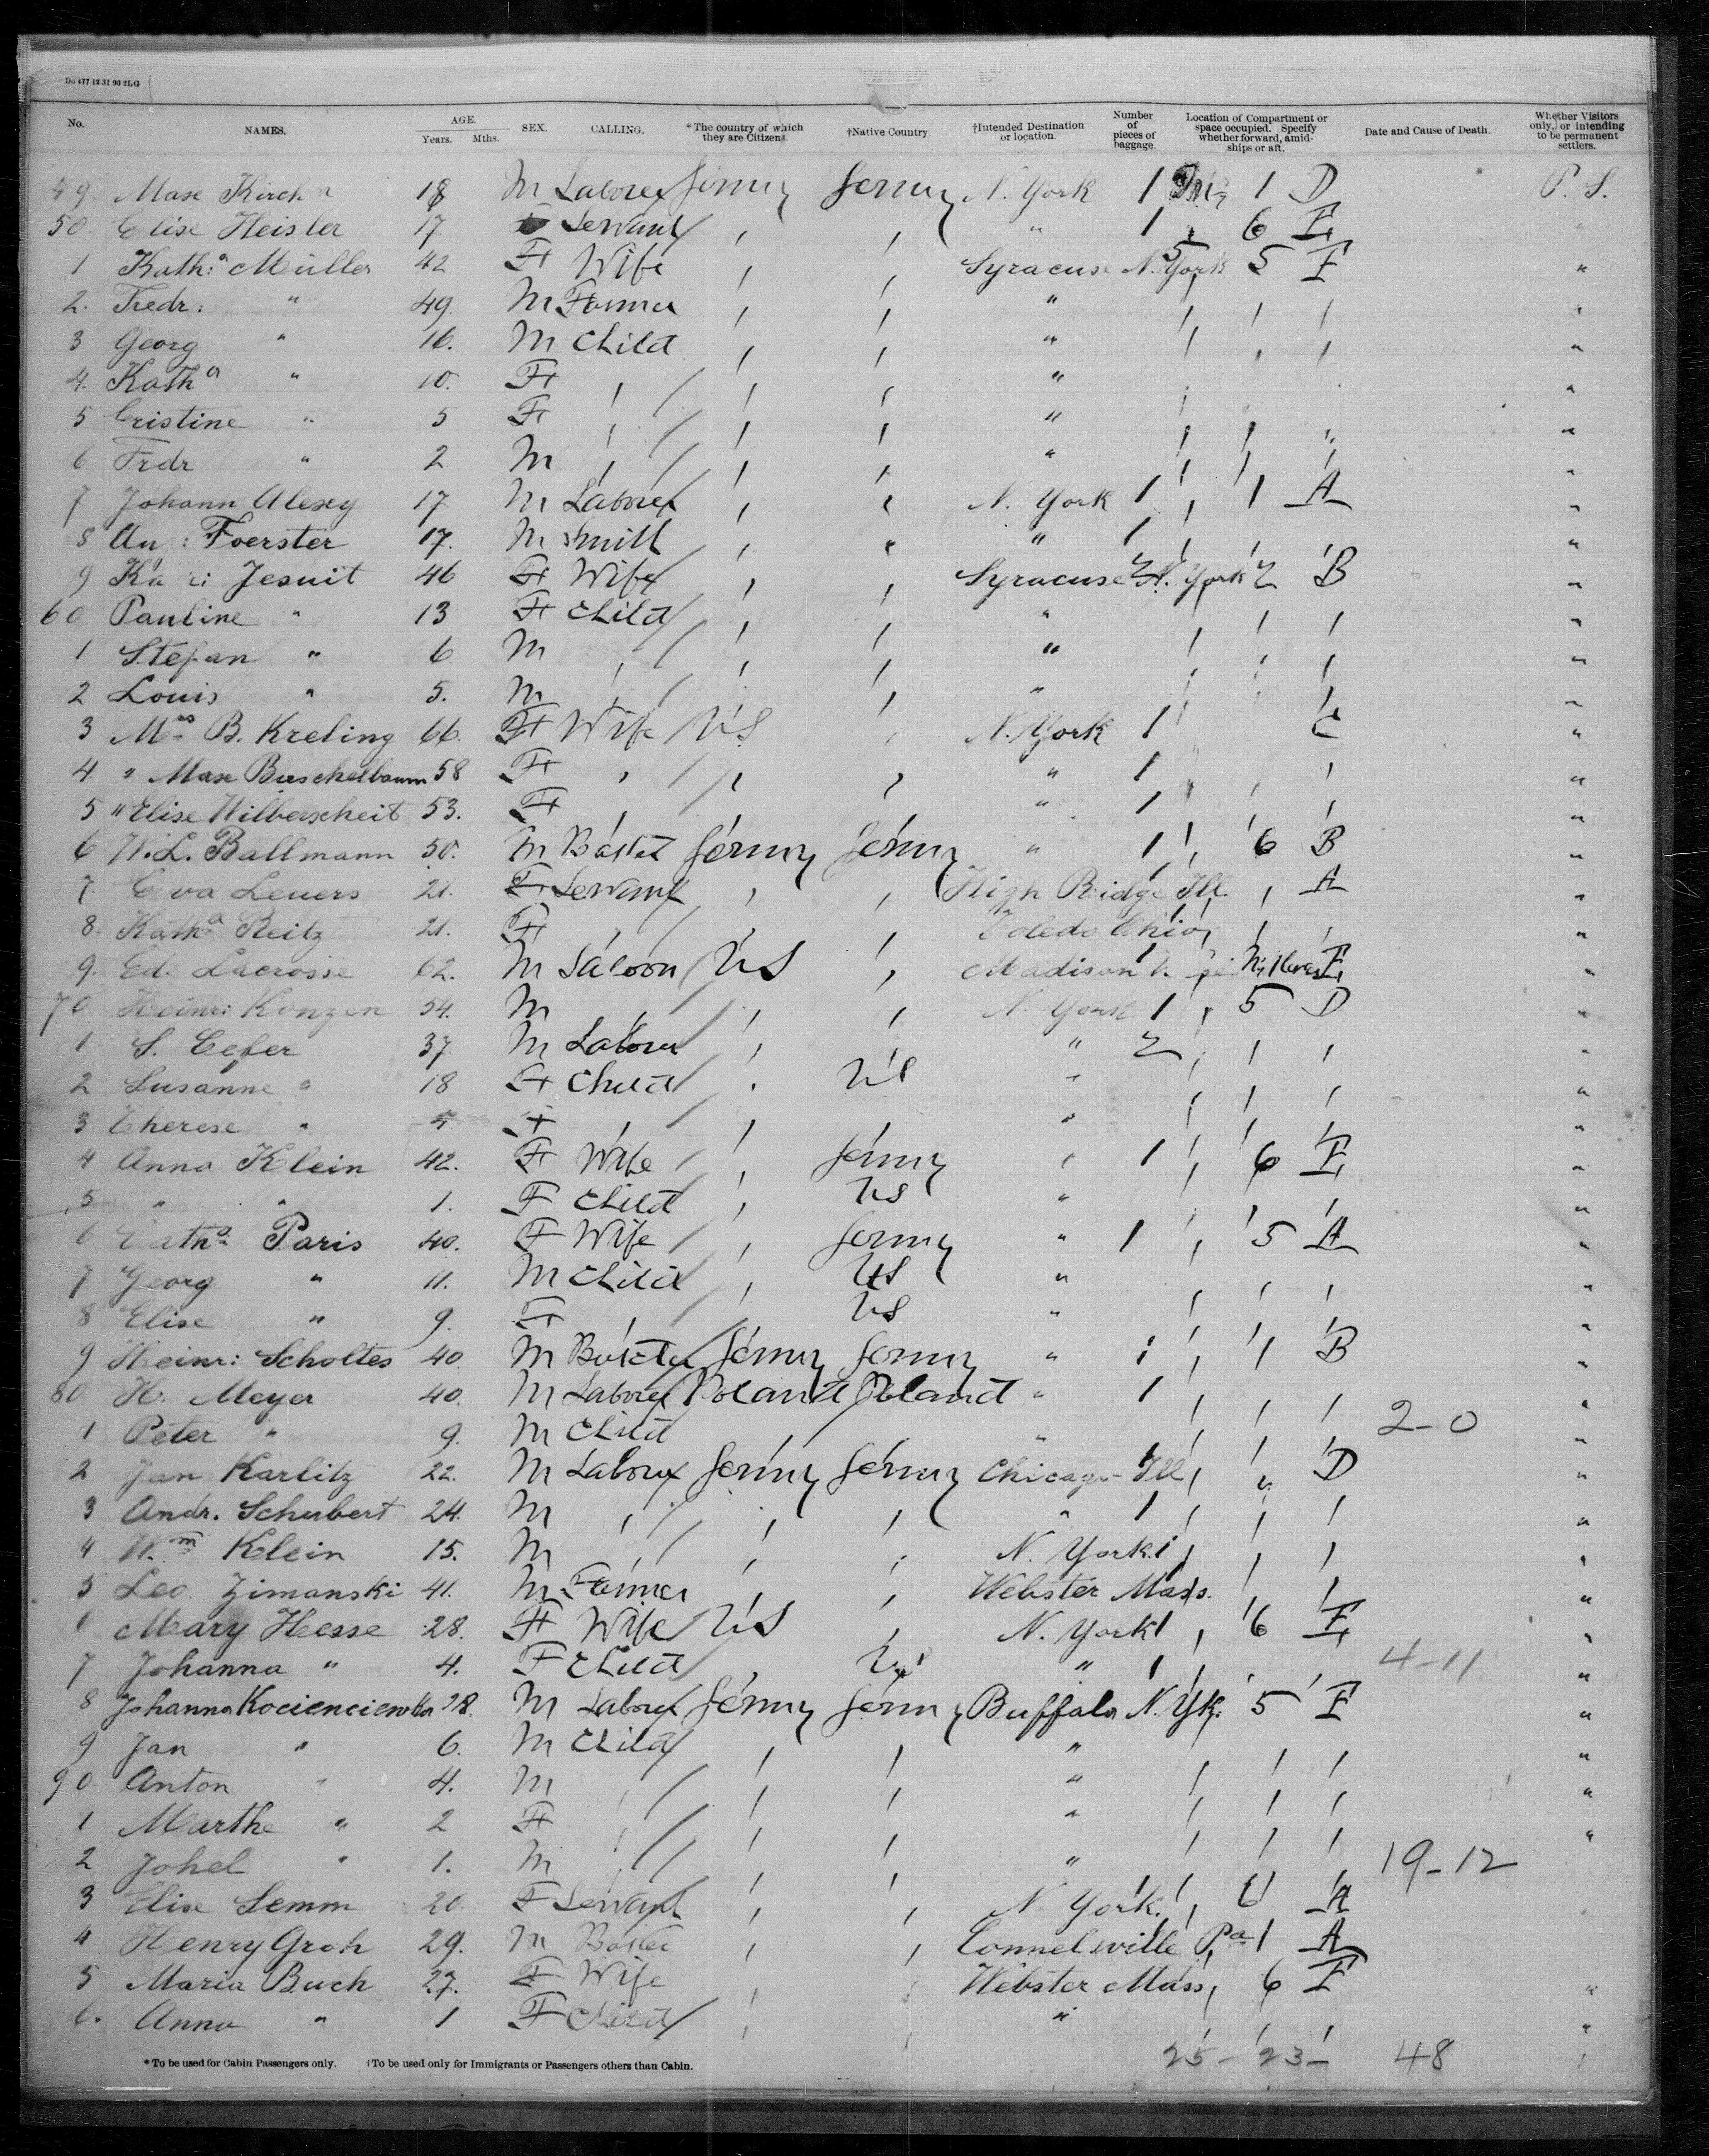 Do 477 12 31 90 2LG
No. NAMES. AGE. Years. Mths. SEX. CALLING. *The country of which they are Citizens. †Native Country. †Intended Destination or location. Number of pieces of baggage. Location of Compartment or space occupied. Specify whether forward, amidships or aft. Date and Cause of Death. Whether Visitors only, or intending to be permanent settlers.
49 Max 18 M Laborer Germny Germny N. York 1 1 D P. S.
50 Elise Heisler 17 Servant " " " 1 " 6 E "
1 Kath:a Müller 42 F Wife " " Syracuse N. York 5 " 5 E "
2. Fredr: " 49. M Farmer " " " " " " "
3 Georg " 16. M Child " " " " " " "
4. Kath a " 10. F " " " " "
5 Cristine " 5 F " " " " " " " "
6 Fredr " 2 M " " " " " " " "
7 Johann Alexy 17 M Laborer " " N. York 1 " 1 A "
8 Au: Foerster 17. M Smith " " " 1 " " " "
9 Jesuit 46 F Wife " " Syracuse N. York 2 B "
60 Pauline " 13 F Child " " " " " " "
1 Stefan " 6 M " " " " " " " "
2 Louis " 5. M " " " " " " " "
3 Mrs B. Kreling 66. F Wife US " N. York 1 " C "
4 " Max Buschelbaum 58 F " " " " 1 " " "
5 " Elise Wilberscheit 53. F " " 1 " " " "
6 W. L. Ballmann 50. M Germny Germny " 1 " 6 B "
7. Eva Leuers 21. F Servant " " High Ridge Ill. " A "
8. Katha Reitz 21. F " " Toledo Ohio " " " "
9. Ed. Lacrosse 62. M Saloon US " Madison E "
70 Heinr: Konzen 54. M " " " N. York 1 " 5 D "
1 S. Cefer 37 M Laborer " " " 2 " " " "
2 Susanne " 18 F Child " US " " " " "
3 Therese " F " " " " " " "
4 Anna Klein 42. F Wife " Germny " 1 " 6 E "
5 " " 1. F Child " US " " " " "
6 Catha: Paris 40. F Wife " Germny " 1 " 5 A "
7 Georg " 11. M Child " US " " " " "
8 Elise " 9. F " US " " " " "
9 Heinr: Scholtes 40. M Germny Germny " 1 " 1 B "
80 H. Meyer 40. M Laborer Poland Poland " 1 " " " "
1 Peter " 9. M Child " " " " " " 2-0 "
2 Jan Karlitz 22. M Laborer Germny Germny Chicago - Ill " " D "
3 Andr. Schubert 24. M " " " " 1 " " " "
4 Wm Klein 15. M " " " N. York 1 " " " "
5 Leo. Zimanski 41. M Farmer " " Webster Mass. " " "
6 Mary Hesse 28. F Wife US " N. York 1 " 6 E "
7 Johanna " 4. F Child " US " 1 " " " 4-11 "
8 Johanna Kociencienska 28. M Laborer Germny Germny Buffalo N. Yk. 5 E "
9 Jan " 6. M Child " " " " " " "
90 Anton " 4. M " " " " " " " "
1 Marthe " 2 F " " " " " " " "
2 Johel " 1. M " " " " " " " 19-12
3 Elise Semm 20. F Servant " " N. York. " 6 A
4 Henry Groh 29. M " " Connelsville Pa 1 A
5 Maria Buch 27. F Wife " " Webster Mass, 6 E "
6. Anna " 1 F Child " " " " " " "
25 - 23 - 48
*To be used for Cabin Passengers only. †To be used only for Immigrants or Passengers others than Cabin.